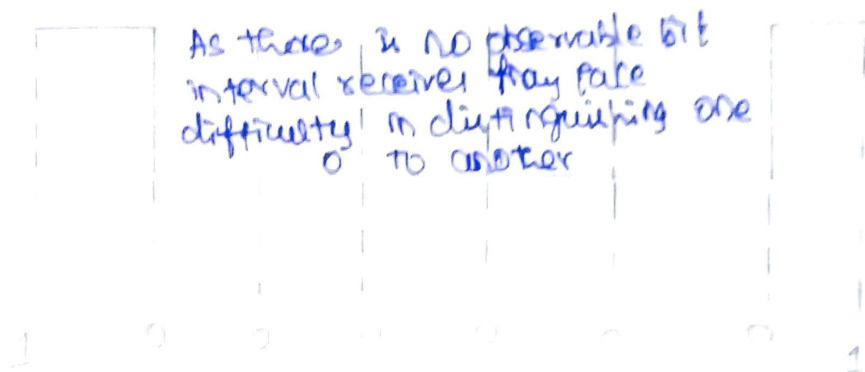 As there is no observable bit
interval receiver may face
difficulty in distinguishing one
0 to another
1 0 0 0 0 0 0 1